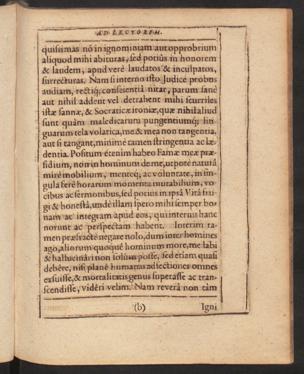 AD LECTOREM.
quissimas nō in ignominiam aut opprobrium
aliquod mihi abituras, sed potiùs in honorem
& laudem, apud verè laudatos & inculpatos,
surrecturas. Nam si interno isto Judice probus
audiam, rectiq; conscientiâ nitar, parum sanè
aut nihil addent vel detrahent mihi scurriles
istæ sannæ, & Socraticæ ironiæ, quæ nihil aliud
sunt quàm maledicarum pungentiumq; lin-
guarum tela volatica, me & mea non tangentia,
aut si tangant, minimè tamen stringentia ac læ-
dentia. Positum etenim habeo Famæ meæ præ-
sidium, non in hominum de me, utpote naturâ
mirè mobilium, menteq; ac voluntate, in sin-
gula ferè horarum momenta mutabilium, vo-
cibus ac sermonibus, sed potius in ipsâ Vitâ fru-
gi & honestâ, unde illam spero mihi semper bo-
nam ac integram apud eos, qui interius hanc
norunt ac perspectam habent. Interim ta-
men præfractè negare nolo, dum inter homines
ago, aliorum quoque hominum more, me labi
& hallucinari non solùm posse, sed etiam quasi
debêre, nisi planè humanas adfectiones omnes
exuisse, & mortalitatis genus superasse ac tran-
scendisse, vidêri velim. Nam reverâ non tàm
(b) Igni